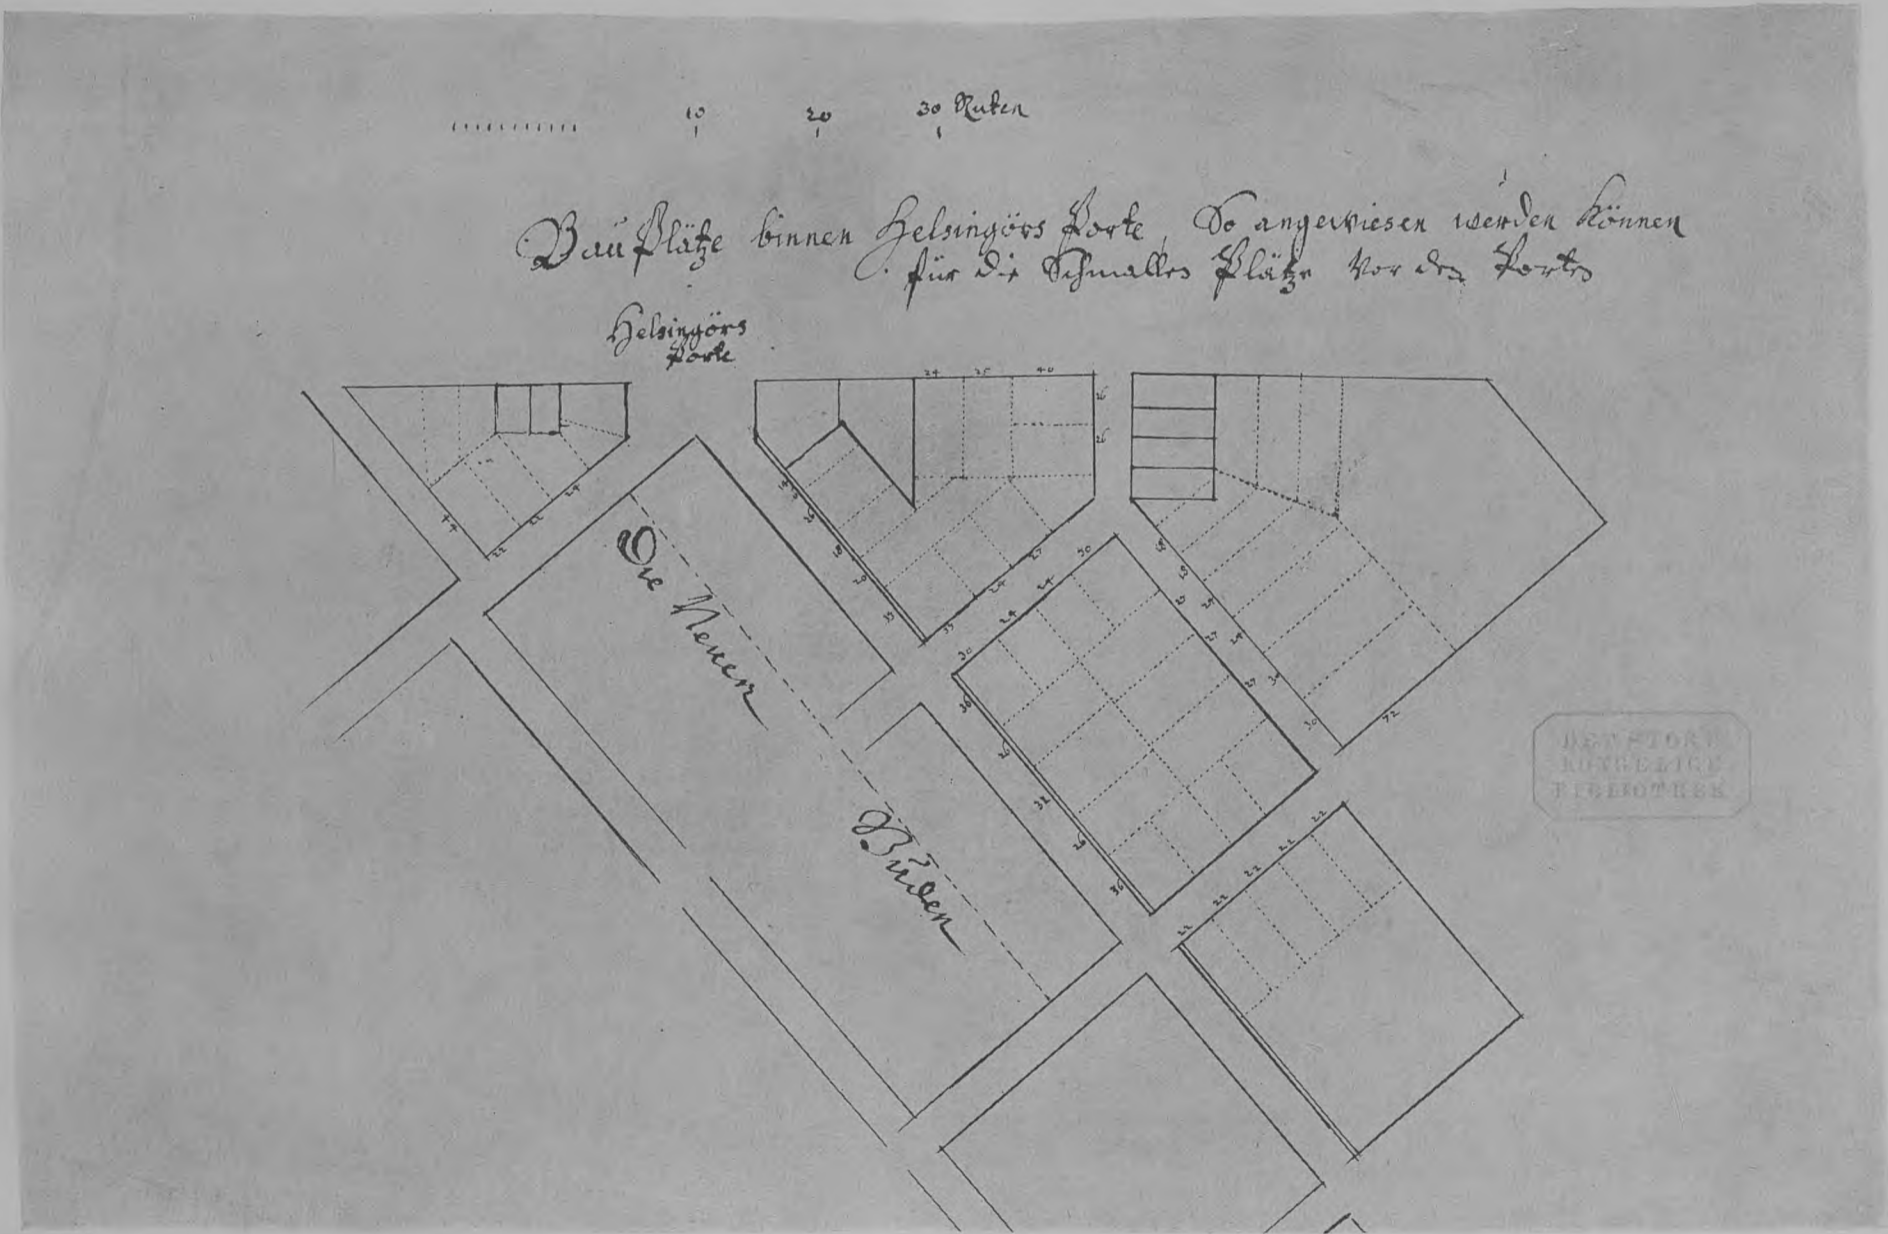 10 20 30 Ruten
Bau Plätze binnen Helsingörs Porte, So angewiesen werden können
für die Schmallen Plätze vor den Porten
Helsingörs
Porte
24 25 40
Die Neuen
Buden
44
22
22
24
24
27
30
24
24
30
27
27
30
72
22
22
22
22
22
DET STORE
KONGELIGE
BIBLIOTHEK